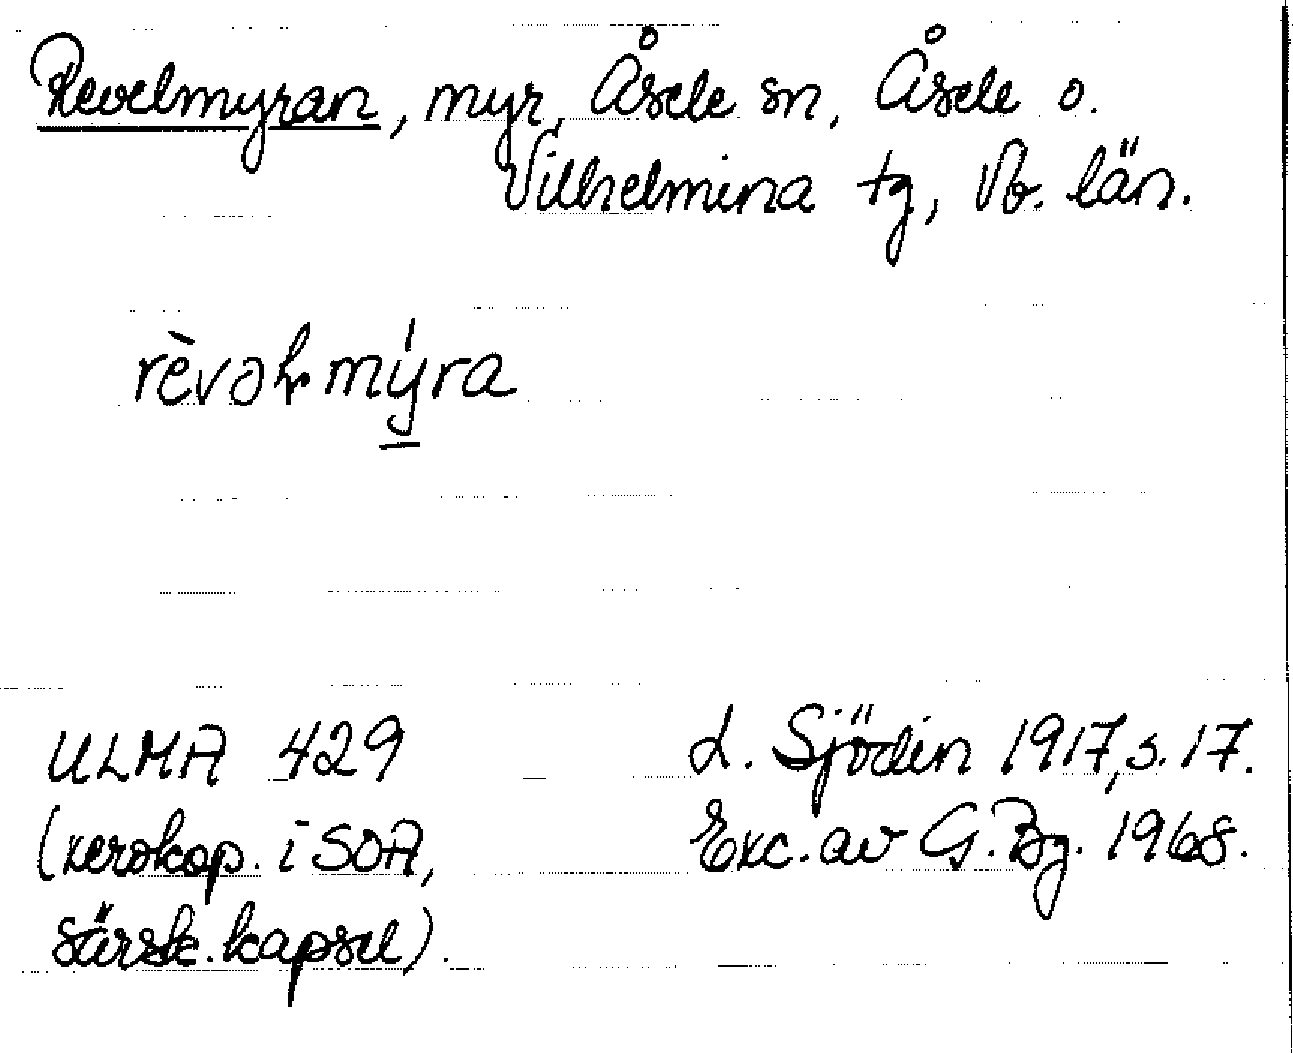 Revelmyran, myr, Åsele sn, Åsele o.
Vilhelmina tg, Vb. län.
rèvəɫmýra
ULMA 429
(xerokop. i SOA,
särsk. kapsel).
L. Sjödin 1917, s. 17.
Exc. av G. Bg. 1968.